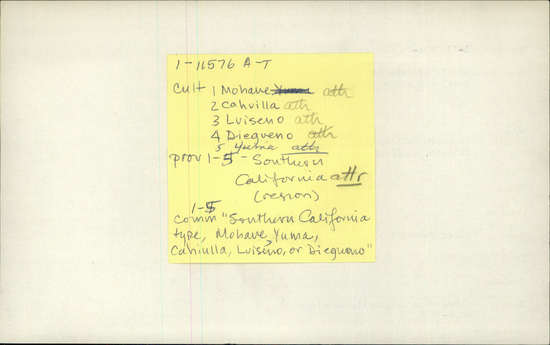 1-11576 A-T
Cult 1 Mohave Yuma attr
2 Cahuilla attr
3 Luiseno attr
4 Diegueno attr
5 Yuma attr
prov 1-5 - Southern
California attr
(region)
1-5
comm "Southern California
type, Mohave, Yuma,
Cahiulla, Luiseño, or Diegueno"